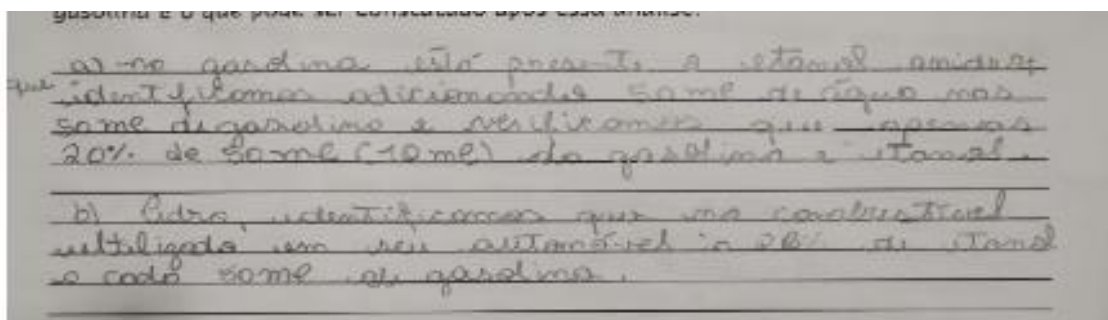 gasolina e o que pode ser constatado após essa análise.
a) na gasolina está presente o etanol
que identificamos adicionando 50 ml de água nos
50 ml de gasolina e verificamos que apenas
20% de 50 ml (10 ml) da gasolina é etanol.
b) Pedro, identificamos que no combustível
ultilizado em seu automóvel é 28% de etanol
a cada 50 ml de gasolina.